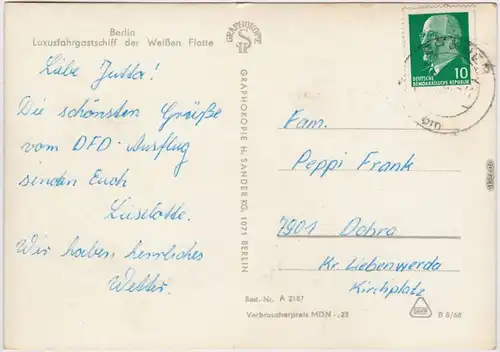 Berlin
Luxusfahrgastschiff der Weißen Flotte
Liebe Jutta!
Die schönsten Grüße
vom DFD-Ausflug
senden Euch
Liselotte.
Wir haben herrliches
Wetter.
GRAPHOKOPIE
GRAPHOKOPIE H. SANDER KG, 1071 BERLIN
10
DEUTSCHE
DEMOKRATISCHE REPUBLIK
Fam.
Peppi Frank
7901 Dobra
Kr. Liebenwerda
Kirchplatz
Best.-Nr. A 2187
Verbraucherpreis MDN -,25
B 8/66